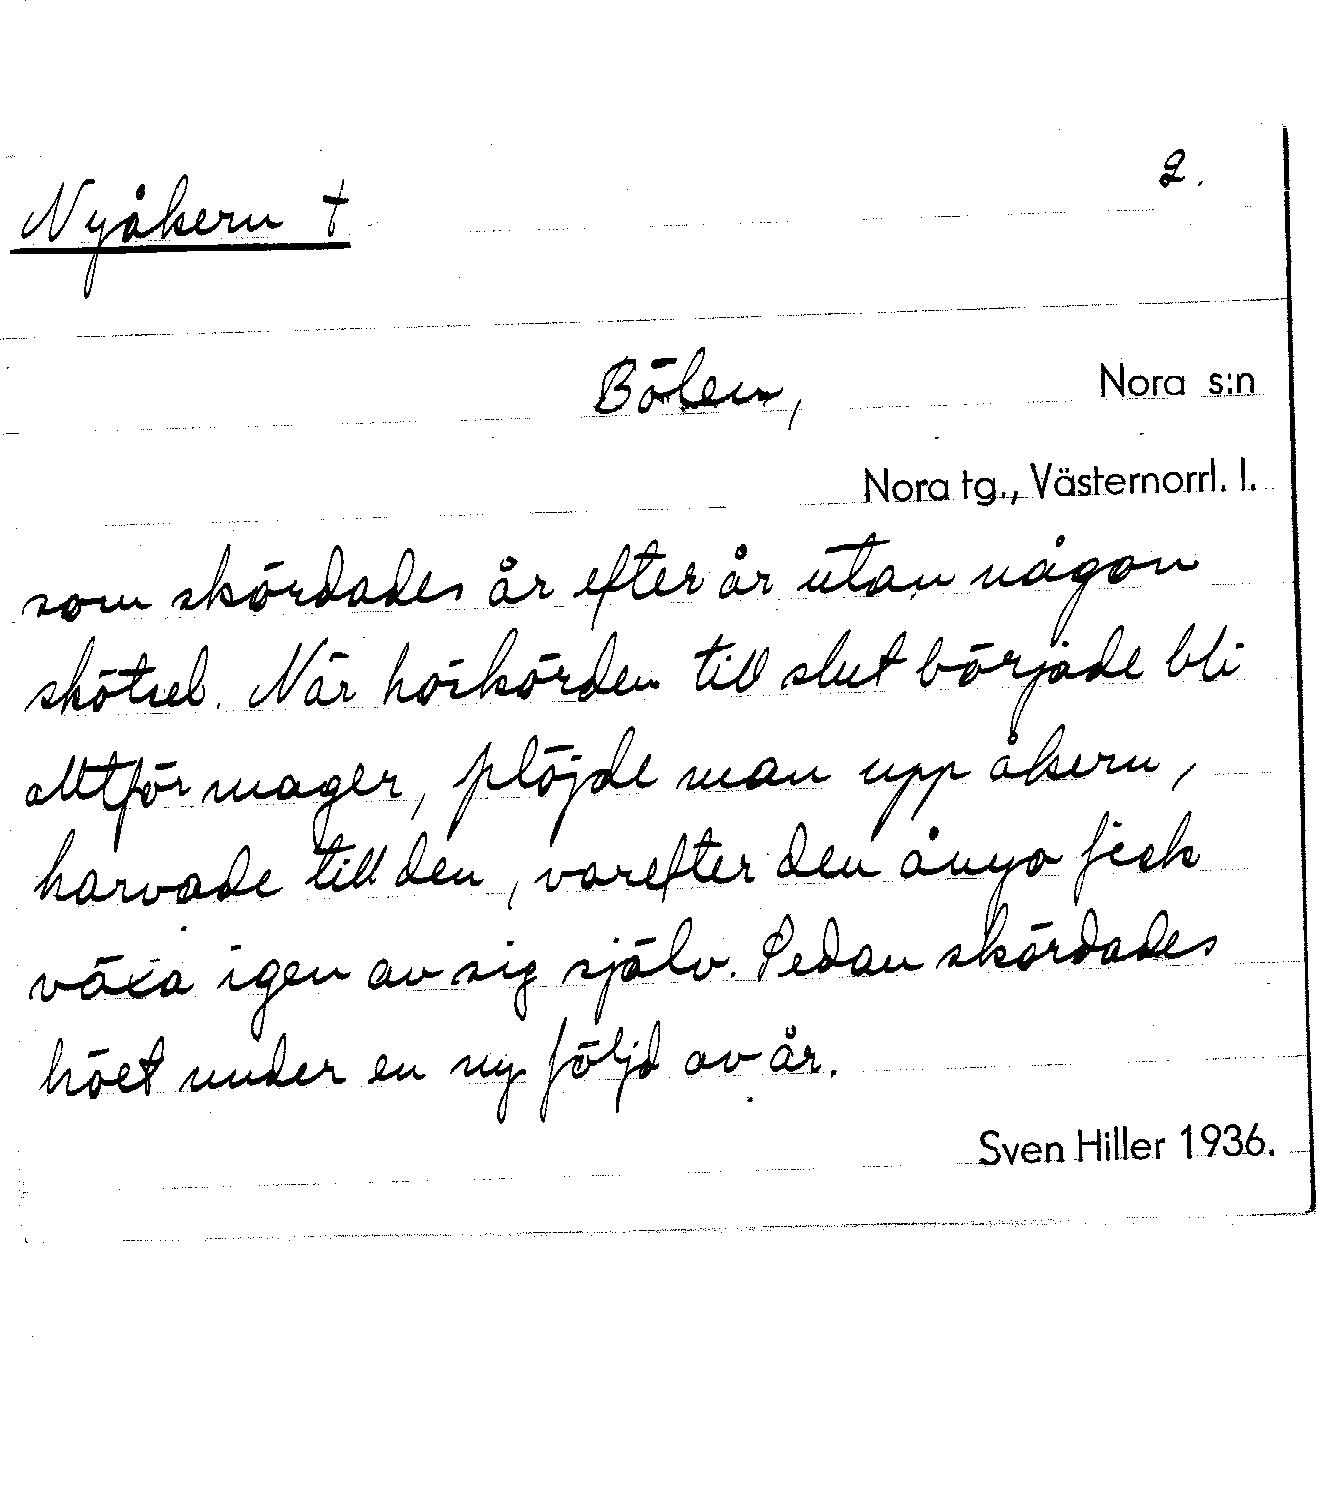 2.
Nyåkern †
Bölen, Nora s:n
Nora tg., Västernorrl. l.
som skördades år efter år utan någon
skötsel. När höskörden till slut började bli
alltför mager, plöjde man upp åkern,
harvade till den, varefter den ånyo fick
växa igen av sig själv. Sedan skördades
höet under en ny följd av år.
Sven Hiller 1936.